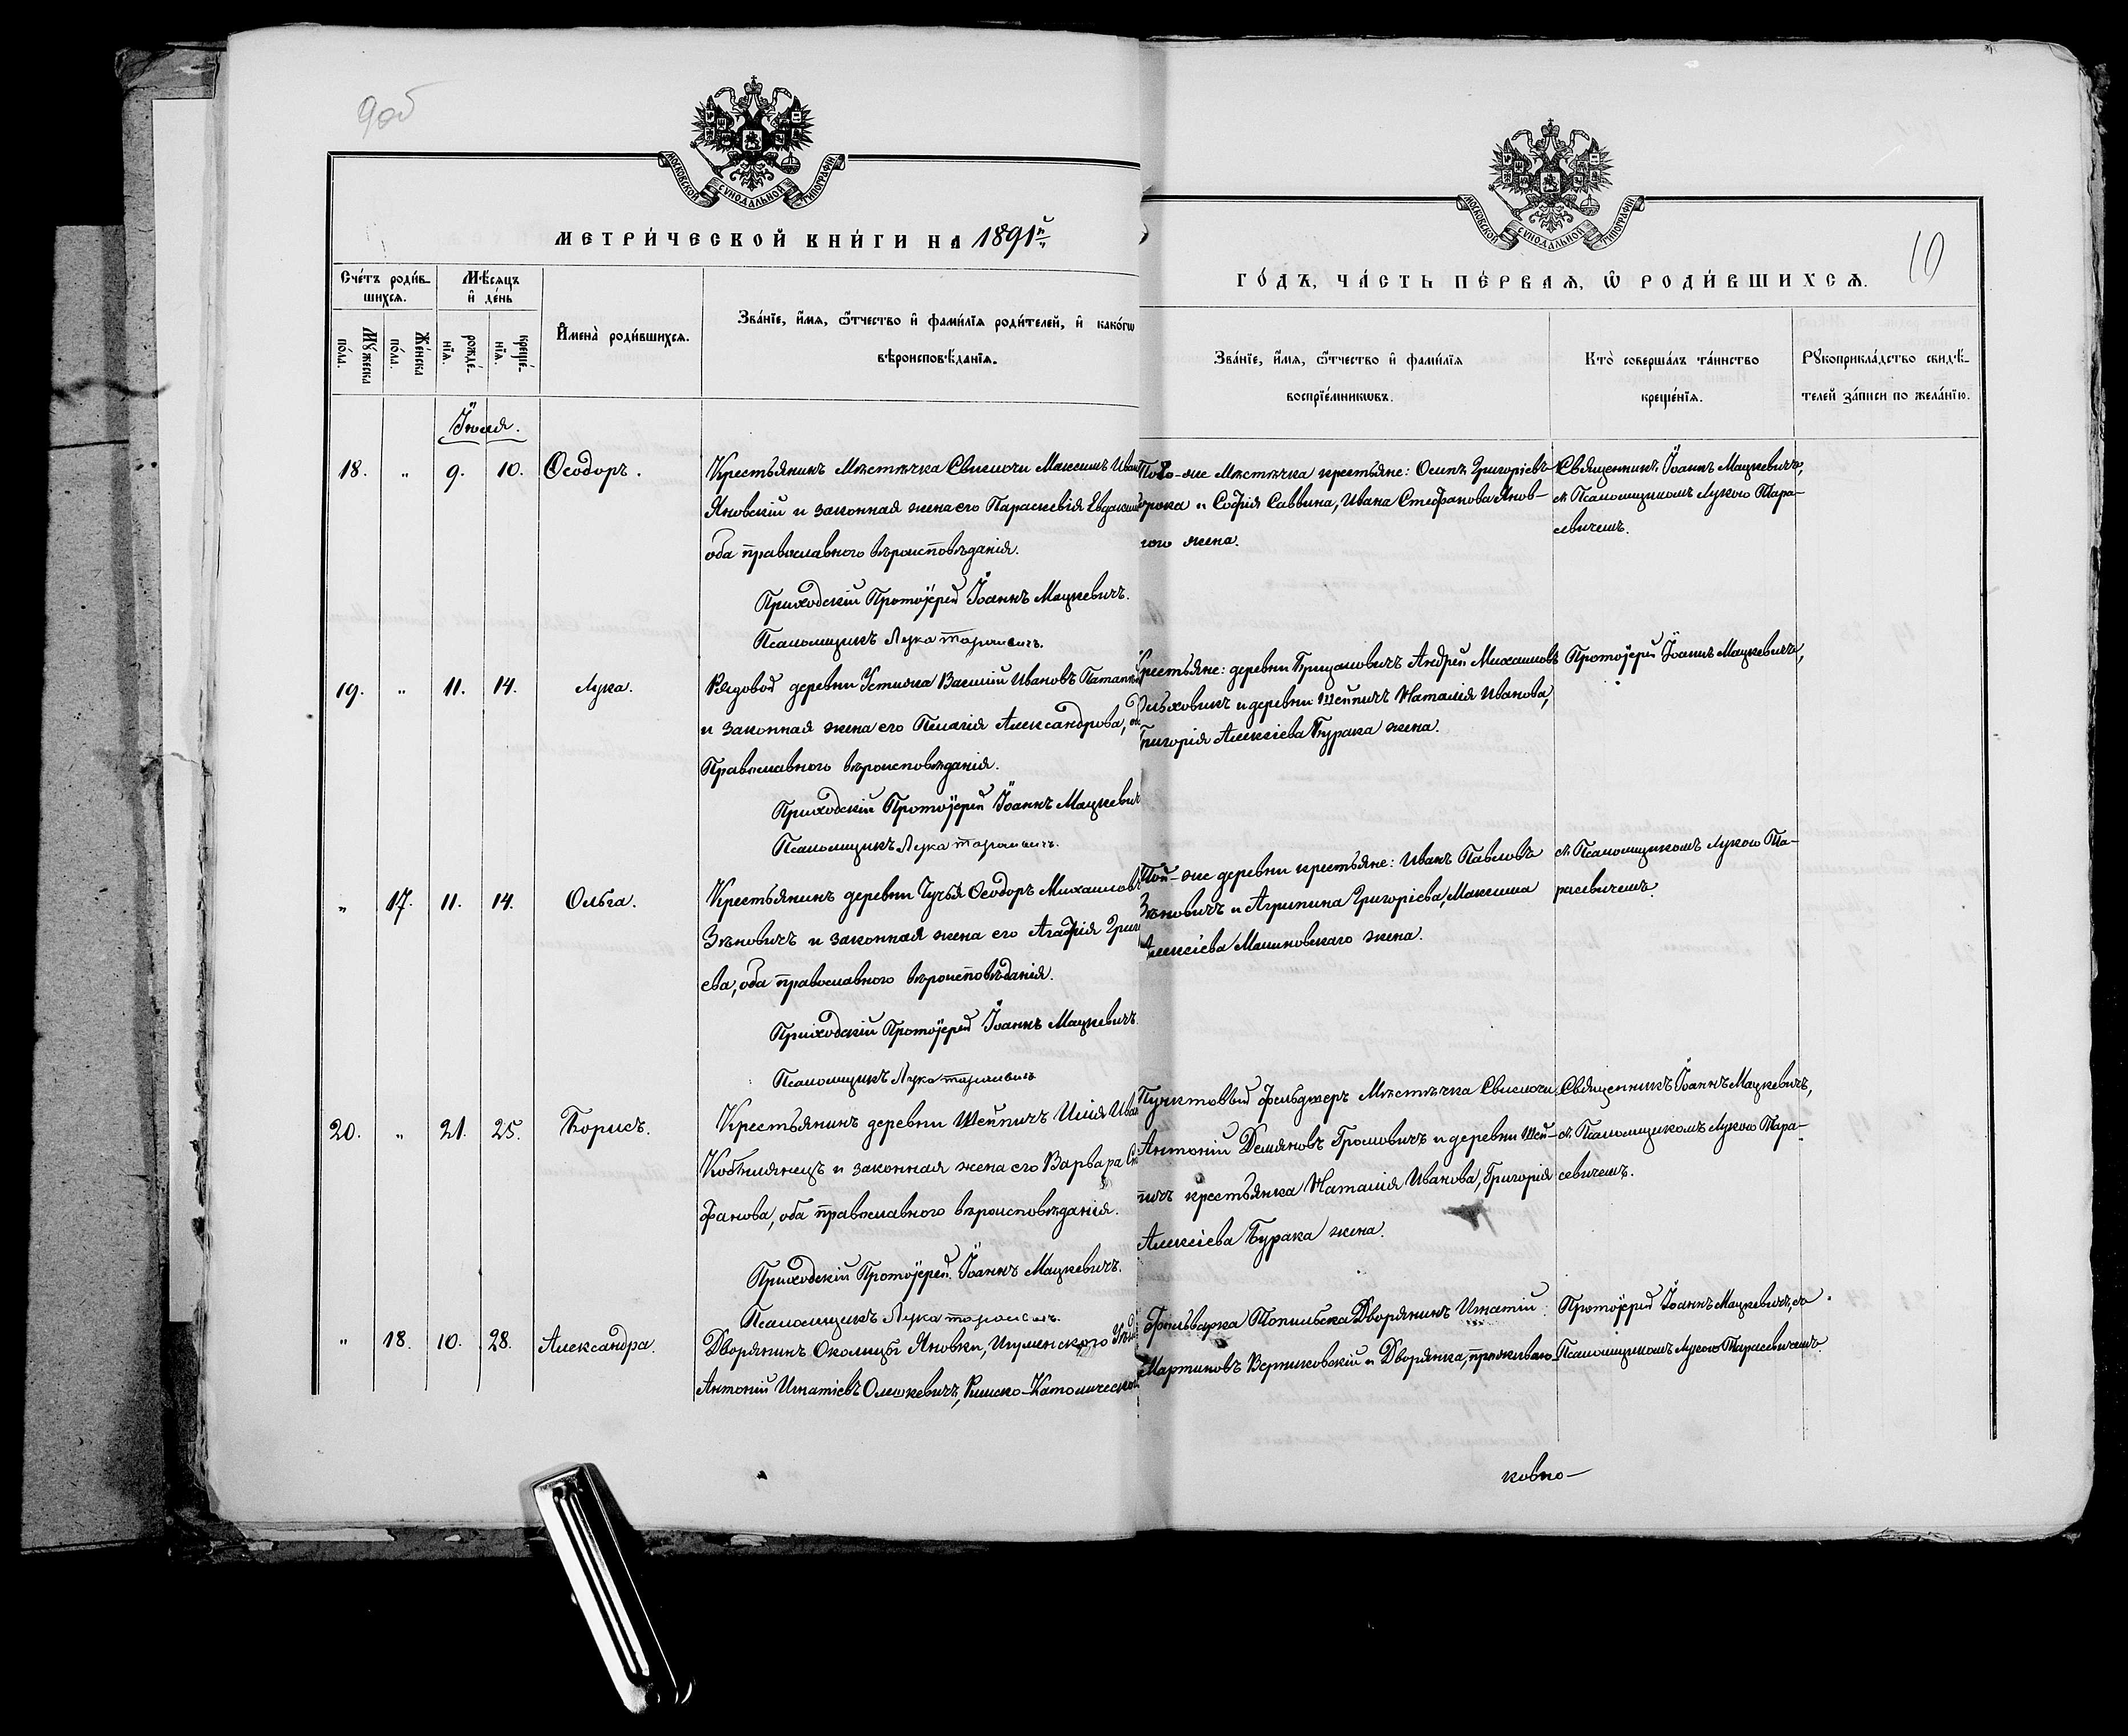 9об
МОСКОВСКОЙ СѴНОДАЛЬНОЙ ТИПОГРАФІИ
МЕТРИ́ЧЕСКОЙ КНИ́ГИ НА 1891й
Сче́тъ роди́в-
шихсѧ.
Мѣ́сѧцъ
и҆ де́нь
Мꙋ́жеска
по́ла.
Же́нска
по́ла.
рожде́-
нїѧ.
креще́-
нїѧ.
И҆мена̀ роди́вшихсѧ.
Зва́нїе, и҆́мѧ, ѻ҆́тчество и҆ фами́лїѧ роди́телей, и҆ како́гѡ
вѣроисповѣ́данїѧ.
Іюля.
18. " 9. 10. Ѳеодоръ.
Крестьянинъ Мѣстечка Свислочи Максимъ Иван
Яновскій и законная жена его Параскевія Евдоким
оба православнаго вѣроисповѣданія.
Приходскій Протоіерей Іоаннъ Мацкевичъ.
Псаломщикъ Лука Тарасевичъ.
19. " 11. 14. Лука.
Рядовой деревни Устижа Василій Ивановъ
и законная жена его Пелагія Александрова,
Православнаго вѣроисповѣданія.
Приходскій Протоіерей Іоаннъ Мацкевич
Псаломщикъ Лука Тарасевичъ.
" 17. 11. 14. Ольга.
Крестьянинъ деревни Чучья Ѳеодоръ Михаиловъ
Зѣновичъ и законная жена его Агафія Григ
ева, оба православнаго вѣроисповѣданія.
Приходскій Протоіерей Іоаннъ Мацкевичъ
Псаломщикъ Лука Тарасевичъ
20. " 21. 25. Борисъ.
Крестьянинъ деревни Шейпичъ Илія Иван
Кобылянецъ и законная жена его Варвара Сте
фанова, оба православнаго вѣроисповѣданія.
Приходскій Протоіерей Іоаннъ Мацкевичъ.
Псаломщикъ Лука Тарасевичъ.
" 18. 10. 28. Александра.
Дворянинъ Околицы Яновки, Игуменского Уѣзд
Антоній Игнатіевъ Олешкевичъ, Римско-Католическо
МОСКОВСКОЙ СѴНОДАЛЬНОЙ ТИПОГРАФІИ
10
ГО́ДЪ, ЧА́СТЬ ПЕ́РВАѦ, Ѡ҆ РОДИ́ВШИХСѦ.
Зва́нїе, и҆́мѧ, ѻ҆́тчество и҆ фами́лїѧ
воспрїе́мникѡвъ.
Кто̀ соверша́лъ та́инство
креще́нїѧ.
Рꙋкоприкла́дство свидѣ́-
телей за́писи по жела́нїю.
Того-же Мѣстечка крестьяне: Осипъ Григоріевъ
рока и Софія Саввина, Ивана Стефанова Янов-
ского жена.
Священникъ Іоаннъ Мацкевичъ,
съ Псаломщикомъ Лукою Тара-
севичемъ.
Крестьяне: деревни Андрей Михаиловъ
Ольховикъ и деревни Шейпичъ Наталія Иванова,
Григорія Алексіева Бурака жена.
Протоіерей Іоаннъ Мацкевичъ,
Той-же деревни крестьяне: Иванъ Павловъ
Зѣновичъ и Агрипина Григоріева, Максима
Алексіева Малиновскаго жена.
съ Псаломщикомъ Лукою Та-
расевичемъ.
Пунктовый фельдшеръ Мѣстечка Свислочи
Антоній Демяновъ Громовичъ и деревни Шей-
пичъ крестьянка Наталія Иванова, Григорія
Алексіева Бурака жена.
Священникъ Іоаннъ Мацкевичъ,
съ Псаломщикомъ Лукою Тара-
севичемъ.
Фольварка Топильска Дворянинъ Игнатій
Мартиновъ Верниковскій и Дворянка, проживаю-
Протоіерей Іоаннъ Мацкевичъ, съ
Псаломщикомъ Лукою Тарасевичемъ.
ковно-